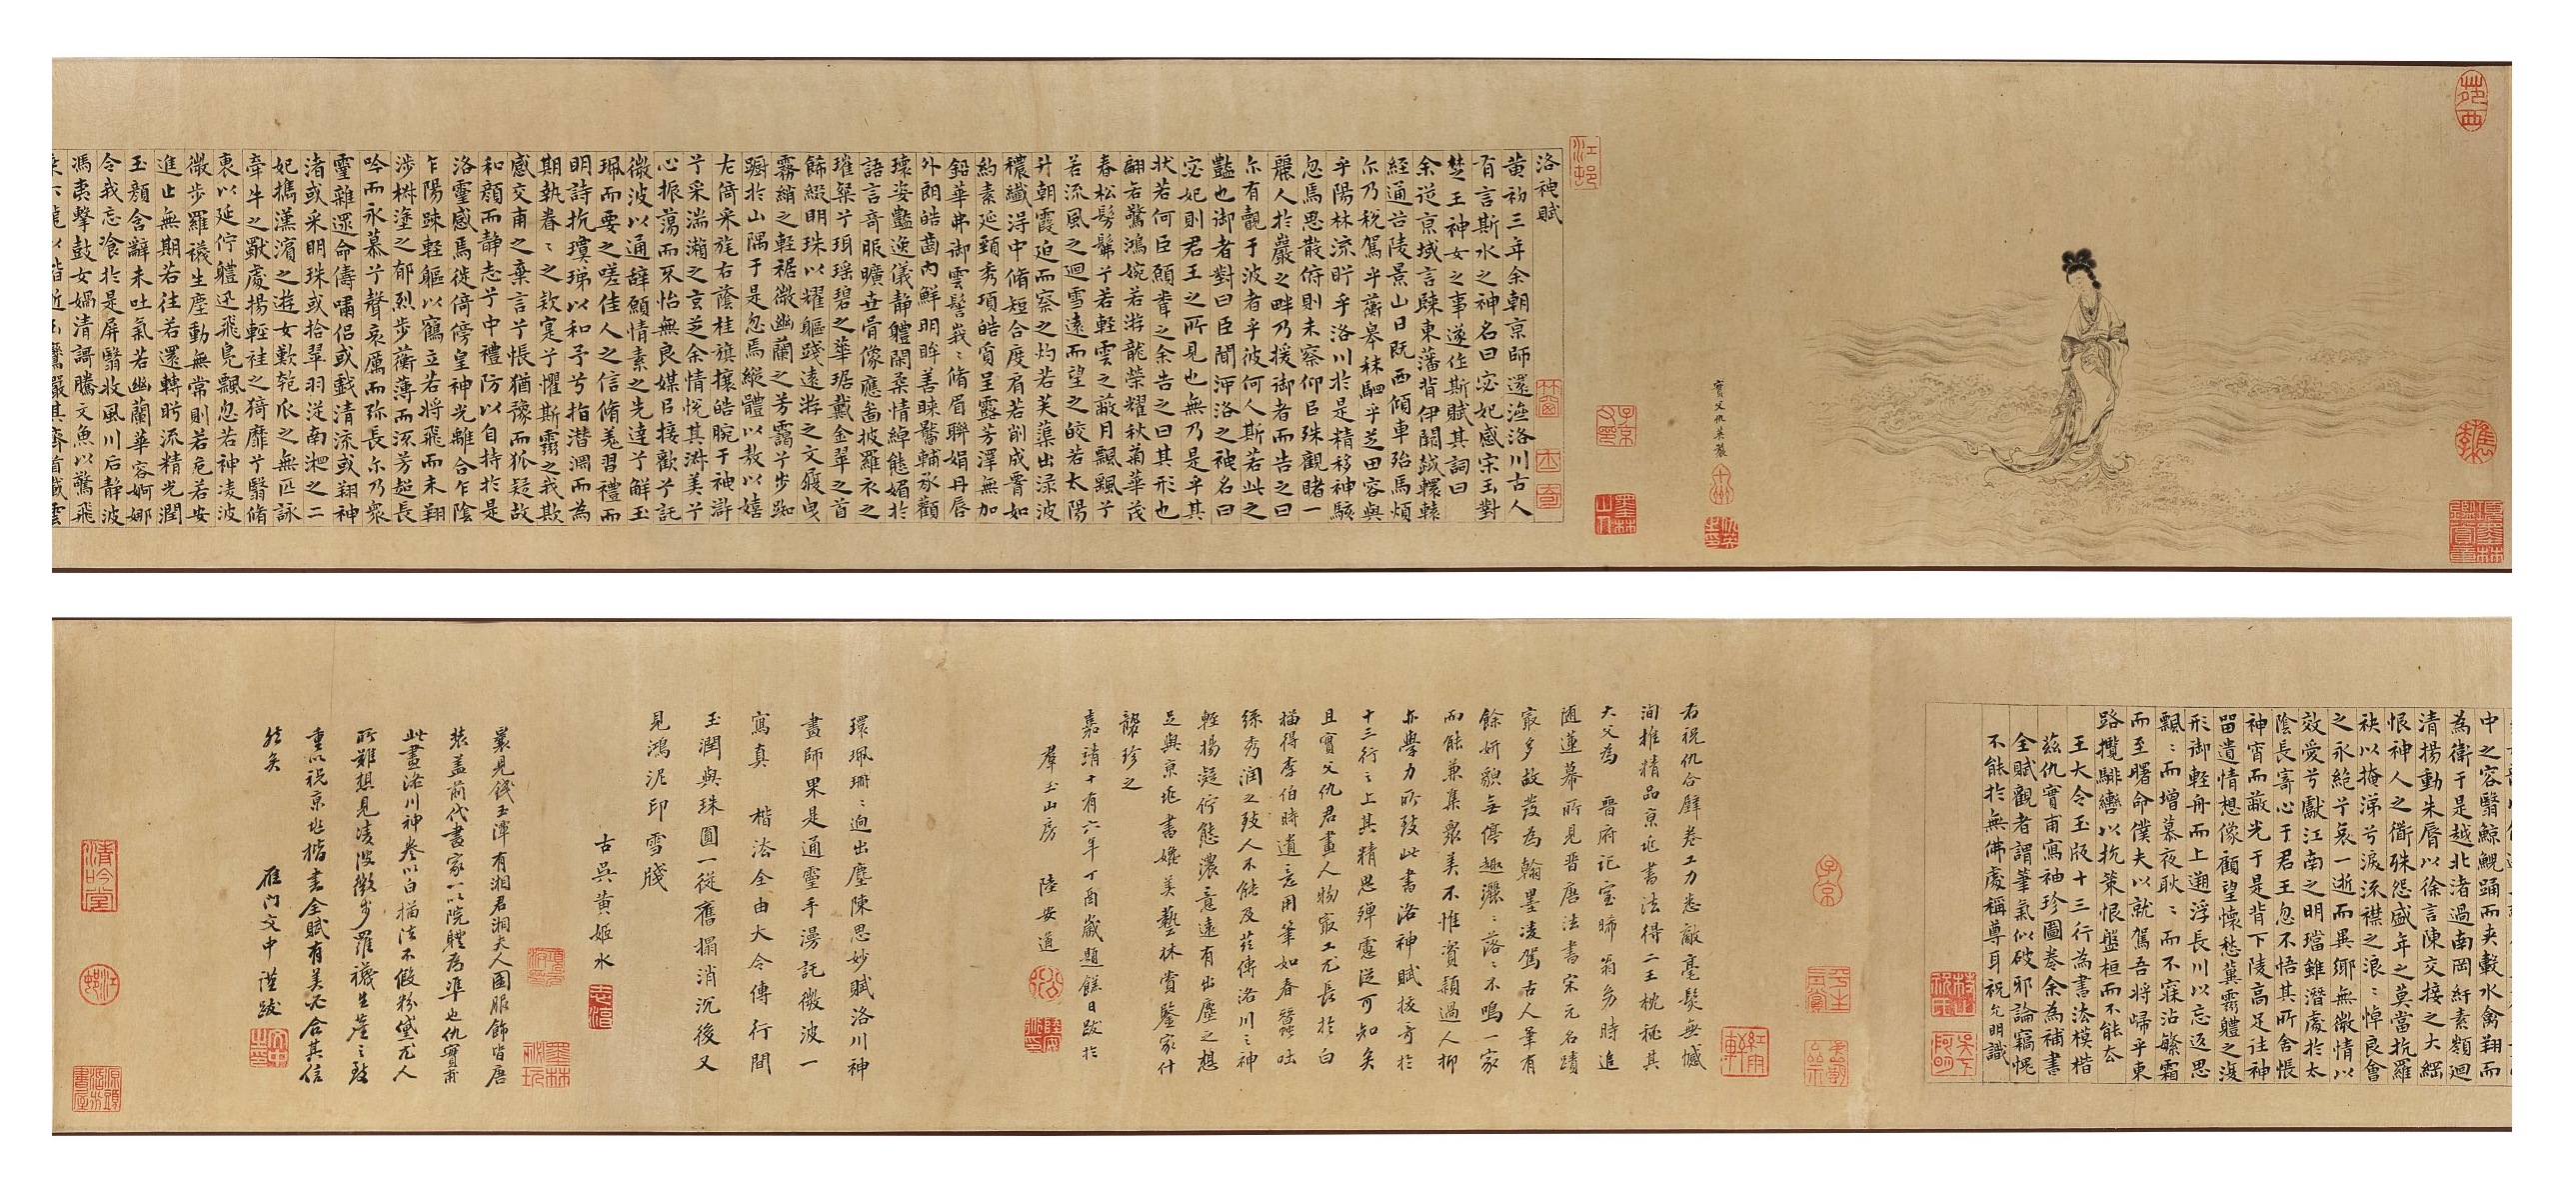 苑西
實父仇英製
洛神賦
黃初三年余朝京師還濟洛川古人
有言斯水之神名曰宓妃感宋玉對
楚王神女之事遂作斯賦其詞曰
余從京域言歸東藩背伊闕越轘轅
經通谷陵景山日既西傾車殆馬煩
尒乃稅駕乎蘅皋秣駟乎芝田容與
乎陽林流眄乎洛川於是精移神駭
忽焉思散俯則未察仰㠯殊觀睹一
麗人於巖之畔乃援御者而告之曰
尒有覿于波者乎彼何人斯若此之
豔也御者對曰臣聞河洛之神名曰
宓妃則君王之所見也無乃是乎其
狀若何臣願聞之余告之曰其形也
翩若驚鴻婉若游龍榮耀秋菊華茂
春松髣髴兮若輕雲之蔽月飄颻兮
若流風之迴雪遠而望之皎若太陽
升朝霞迫而察之灼若芙蕖出淥波
穠纖得中脩短合度肩若削成腰如
約素延頸秀項皓質呈露芳澤無加
鉛華弗御雲髻峩〻脩眉聯娟丹唇
外朗皓齒內鮮明眸善睞靨輔承顴
瓌姿豔逸儀靜體閑柔情綽態媚於
語言奇服曠世骨像應圖披羅衣之
璀粲兮珥瑤碧之華琚戴金翠之首
飾綴明珠以耀軀踐遠游之文履曳
霧綃之輕裾微幽蘭之芳藹兮步踟
躕於山隅于是忽焉縱體以敖以嬉
左倚采旄右蔭桂旗攘皓腕于神滸
兮采湍瀨之玄芝余情悅其淑美兮
心振蕩而不怡無良媒㠯接歡兮託
微波以通辭願情素之先達兮解玉
珮而要之嗟佳人之信脩羌習禮而
明詩抗瓊珶以和予兮指潛淵而為
期執眷〻之款寔兮懼斯靈之我欺
感交甫之棄言兮悵猶豫而狐疑故
和顏而靜志兮申禮防以自持於是
洛靈感焉徙倚傍皇神光離合乍陰
乍陽竦輕軀以鶴立若將飛而未翔
涉椒塗之郁烈步蘅薄而流芳超長
吟而永慕兮聲哀厲而弥長尒乃眾
靈雜遝命儔嘯侶或戲清流或翔神
渚或采明珠或拾翠羽從南湘之二
妃攜漢濱之遊女歎匏瓜之無匹詠
牽牛之獨處揚輕袿之猗靡兮翳脩
褎以延佇體迅飛鳧飄忽若神凌波
微步羅襪生塵動無常則若危若安
進止無期若往若還轉眄流精光潤
玉顏含辭未吐氣若幽蘭華容婀娜
令我忘飡於是屏翳收風川后靜波
馮夷擊鼓女媧清謌騰文魚以驚飛
中之容翳鯨鯢踊而夾轂水禽翔而
為衛于是越北渚過南岡紆素領迴
清揚動朱脣以徐言陳交接之大綱
恨神人之衟殊怨盛年之莫當抗羅
袂以掩涕兮淚流襟之浪〻悼良會
之永絕兮哀一逝而異鄉無微情以
效愛兮獻江南之明璫雖潛處於太
陰長寄心于君王忽不悟其所舍悵
神宵而蔽光于是背下陵高足往神
留遺情想像顧望懷愁冀靈體之復
形御輕舟而上遡浮長川以忘返思
飄〻而增慕夜耿〻而不寐沾繁霜
而至曙命僕夫以就駕吾將歸乎東
路攬騑轡以抗策恨盤桓而不能去
王大令玉版十三行為書法模楷
茲仇實甫寫袖珍圖卷余為補書
全賦觀者謂筆氣似破邪論竊愧
不能於無佛處稱尊耳祝允明識
右祝仇合璧卷工力悉敵毫髮無憾
洵推精品京兆書法得二王枕秘其
大父為晉府記室歸翁多時追
隨蓮幕所見晉唐法書宋元名蹟
最多故發為翰墨凌駕古人筆有
餘妍貌無停趣灑〻落〻不鳴一家
而能兼集眾美不惟資穎過人抑
亦學力所致此書洛神賦按音於
十三行之上其精思殫慮從可知矣
且實父仇君畫人物最工尤長於白
描得李伯時遺意用筆如春蠶吐
絲秀潤之致人不能及茲傳洛川之神
輕揚凝佇態濃意遠有出塵之想
足與京兆書媲美藝林賞鑒家什
襲珍之
嘉靖十有六年丁酉歲題餘日跋於
羣玉山房 陸安道
環珮珊〻逈出塵陳思妙賦洛川神
畫師果是通靈手漫託微波一
寫真 楷法全由大令傳行間
玉潤與珠圓一從舊搨消沉後又
見鴻泥印雪牋
古吳黃姬水
曩見錢玉潭有湘君湘夫人圖服飾皆唐
裝蓋前代畫家一以院體為準也仇實甫
此畫洛川神卷以白描法不假粉黛尤人
所難想見凌波微步羅襪生塵之致
重以祝京兆楷書全賦有美必合其信
然矣
雁門文中謹跋
清吟堂